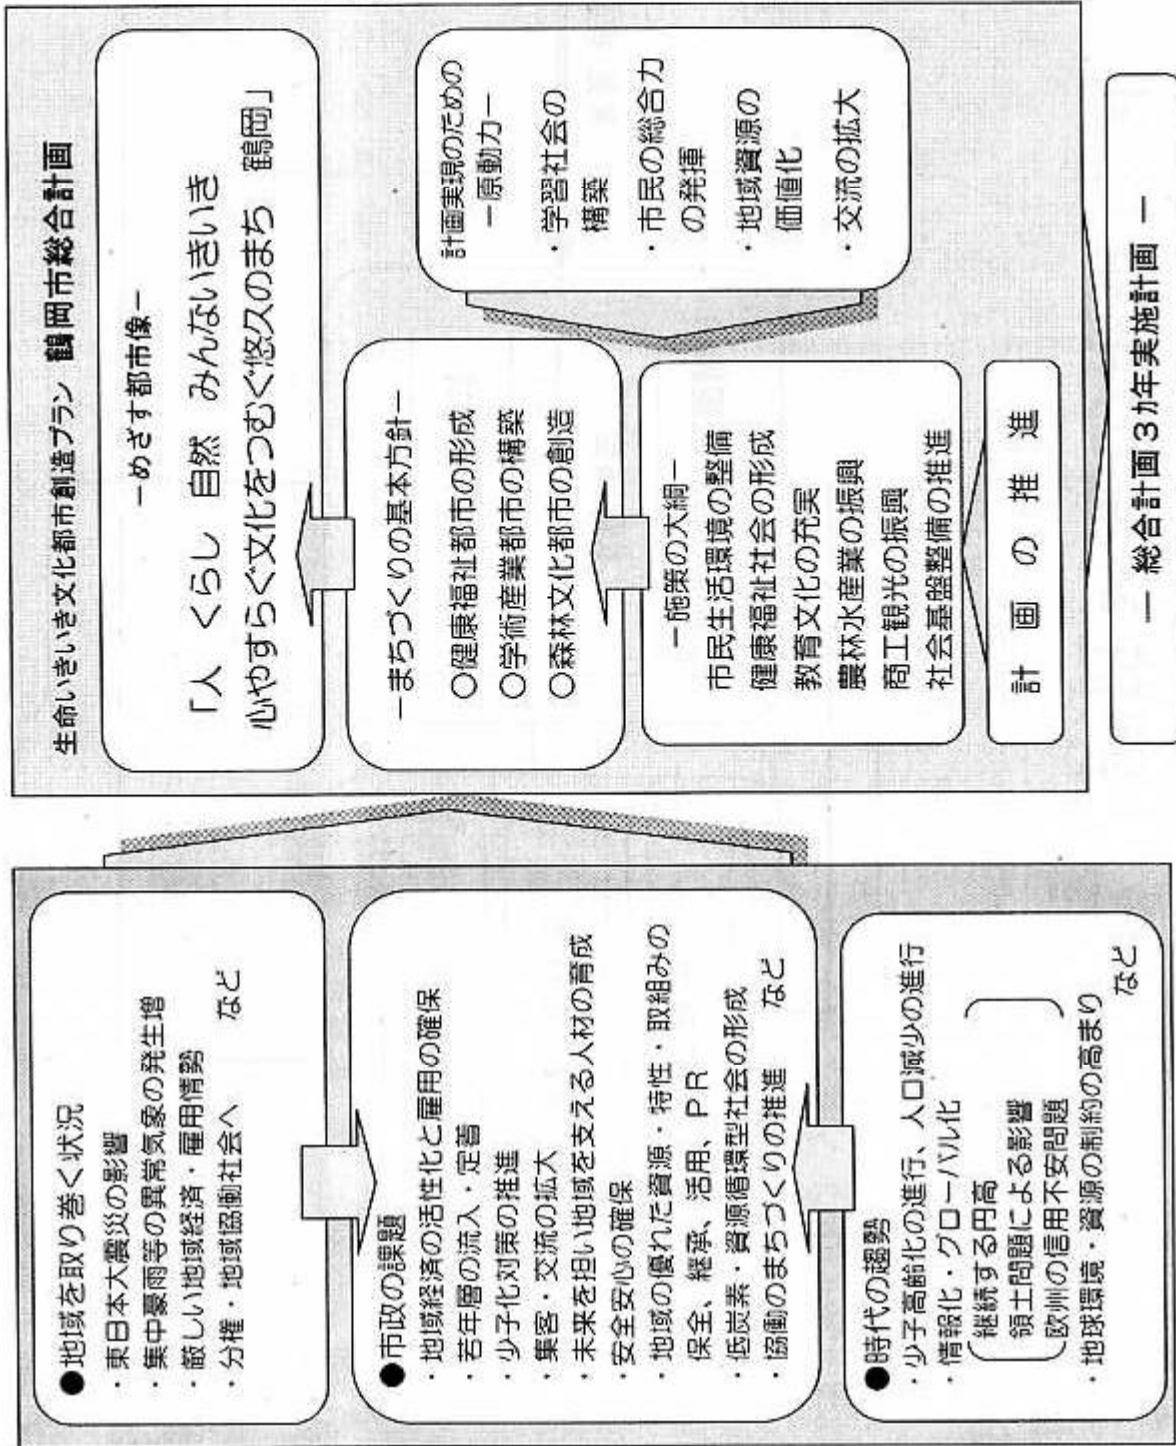 ●地域を取り巻く状況
・東日本大震災の影響
・集中豪雨等の異常気象の発生増
・厳しい地域経済・雇用情勢
・分権・地域協働社会へ　など
●市政の課題
・地域経済の活性化と雇用の確保
・若年層の流入・定着
・少子化対策の推進
・集客・交流の拡大
・未来を担い地域を支える人材の育成
・安全安心の確保
・地域の優れた資源・特性・取組みの
保全、継承、活用、PR
・低炭素・資源循環型社会の形成
・協働のまちづくりの推進　など
●時代の趨勢
・少子高齢化の進行、人口減少の進行
・情報化・グローバル化
継続する円高
領土問題による影響
欧州の信用不安問題
・地球環境・資源の制約の高まり
など
生命いきいき文化都市創造プラン　鶴岡市総合計画
－めざす都市像－
「人　くらし　自然　みんないきいき
心やすらぐ文化をつむぐ悠久のまち　鶴岡」
－まちづくりの基本方針－
○健康福祉都市の形成
○学術産業都市の構築
○森林文化都市の創造
－施策の大綱－
市民生活環境の整備
健康福祉社会の形成
教育文化の充実
農林水産業の振興
商工観光の振興
社会基盤整備の推進
計画の推進
計画実現のための
－原動力－
・学習社会の
構築
・市民の総合力
の発揮
・地域資源の
価値化
・交流の拡大
― 総合計画３ヵ年実施計画 ―